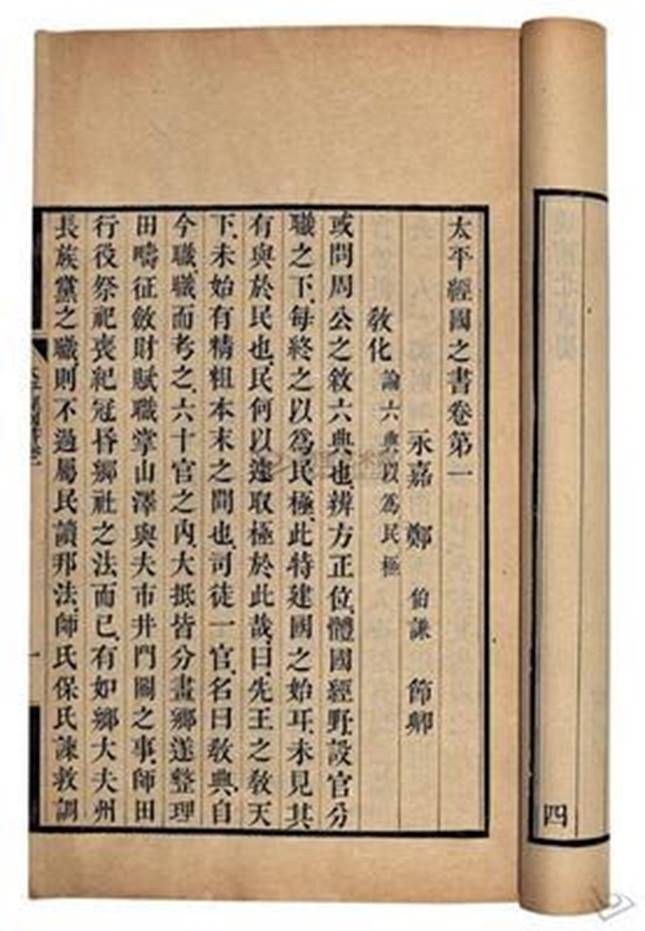 太平經國之書卷第一
永嘉 鄭 伯謙 節卿
敎化 論六典以爲民極
或問周公之敘六典也、辨方正位、體國經野、設官分
職之下、每終之以爲民極、此特建國之始耳、未見其
有與於民也、民何以遽取極於此哉、曰、先王之敎天
下、未始有精粗本末之間也、司徒一官、名曰敎典、自
今職、職而考之、六十官之內、大抵皆分畫鄕遂整理
田疇征斂財賦職掌山澤與夫市井門關之事、師田
行役祭祀喪紀冠昏鄕社之法而已、有如鄕大夫州
長族黨之職、則不過屬民讀邦法、師氏保氏諫救調
一
四